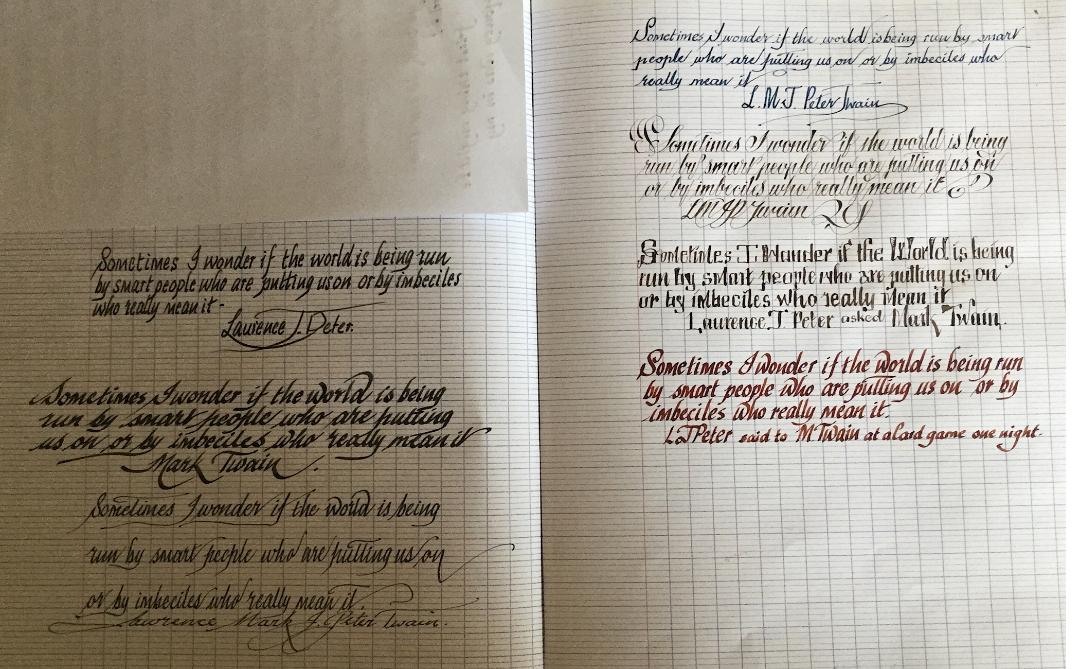 Sometimes I wonder if the world is being run
by smart people who are putting us on or by imbeciles
who really mean it -
Laurence J. Peter.
Sometimes I wonder if the world is being
run by smart people who are putting
us on or by imbeciles who really mean it
Mark Twain.
Sometimes I wonder if the world is being
run by smart people who are putting us on
or by imbeciles who really mean it.
Lawrence Mark J. Peter Twain.
Sometimes I wonder if the world is being run by smart
people who are putting us on or by imbeciles who
really mean it
L.M.J. Peter Twain
Sometimes I wonder if the world is being
run by smart people who are putting us on
or by imbeciles who really mean it
LMJP Twain
Sometimes I Wonder if the World is being
run by smart people who are putting us on
or by imbeciles who really Mean it
Laurence J. Peter asked Mark Twain.
Sometimes I Wonder if the World is being run
by smart people who are putting us on or by
imbeciles who really mean it.
LJPeter said to MTwain at a card game one night.